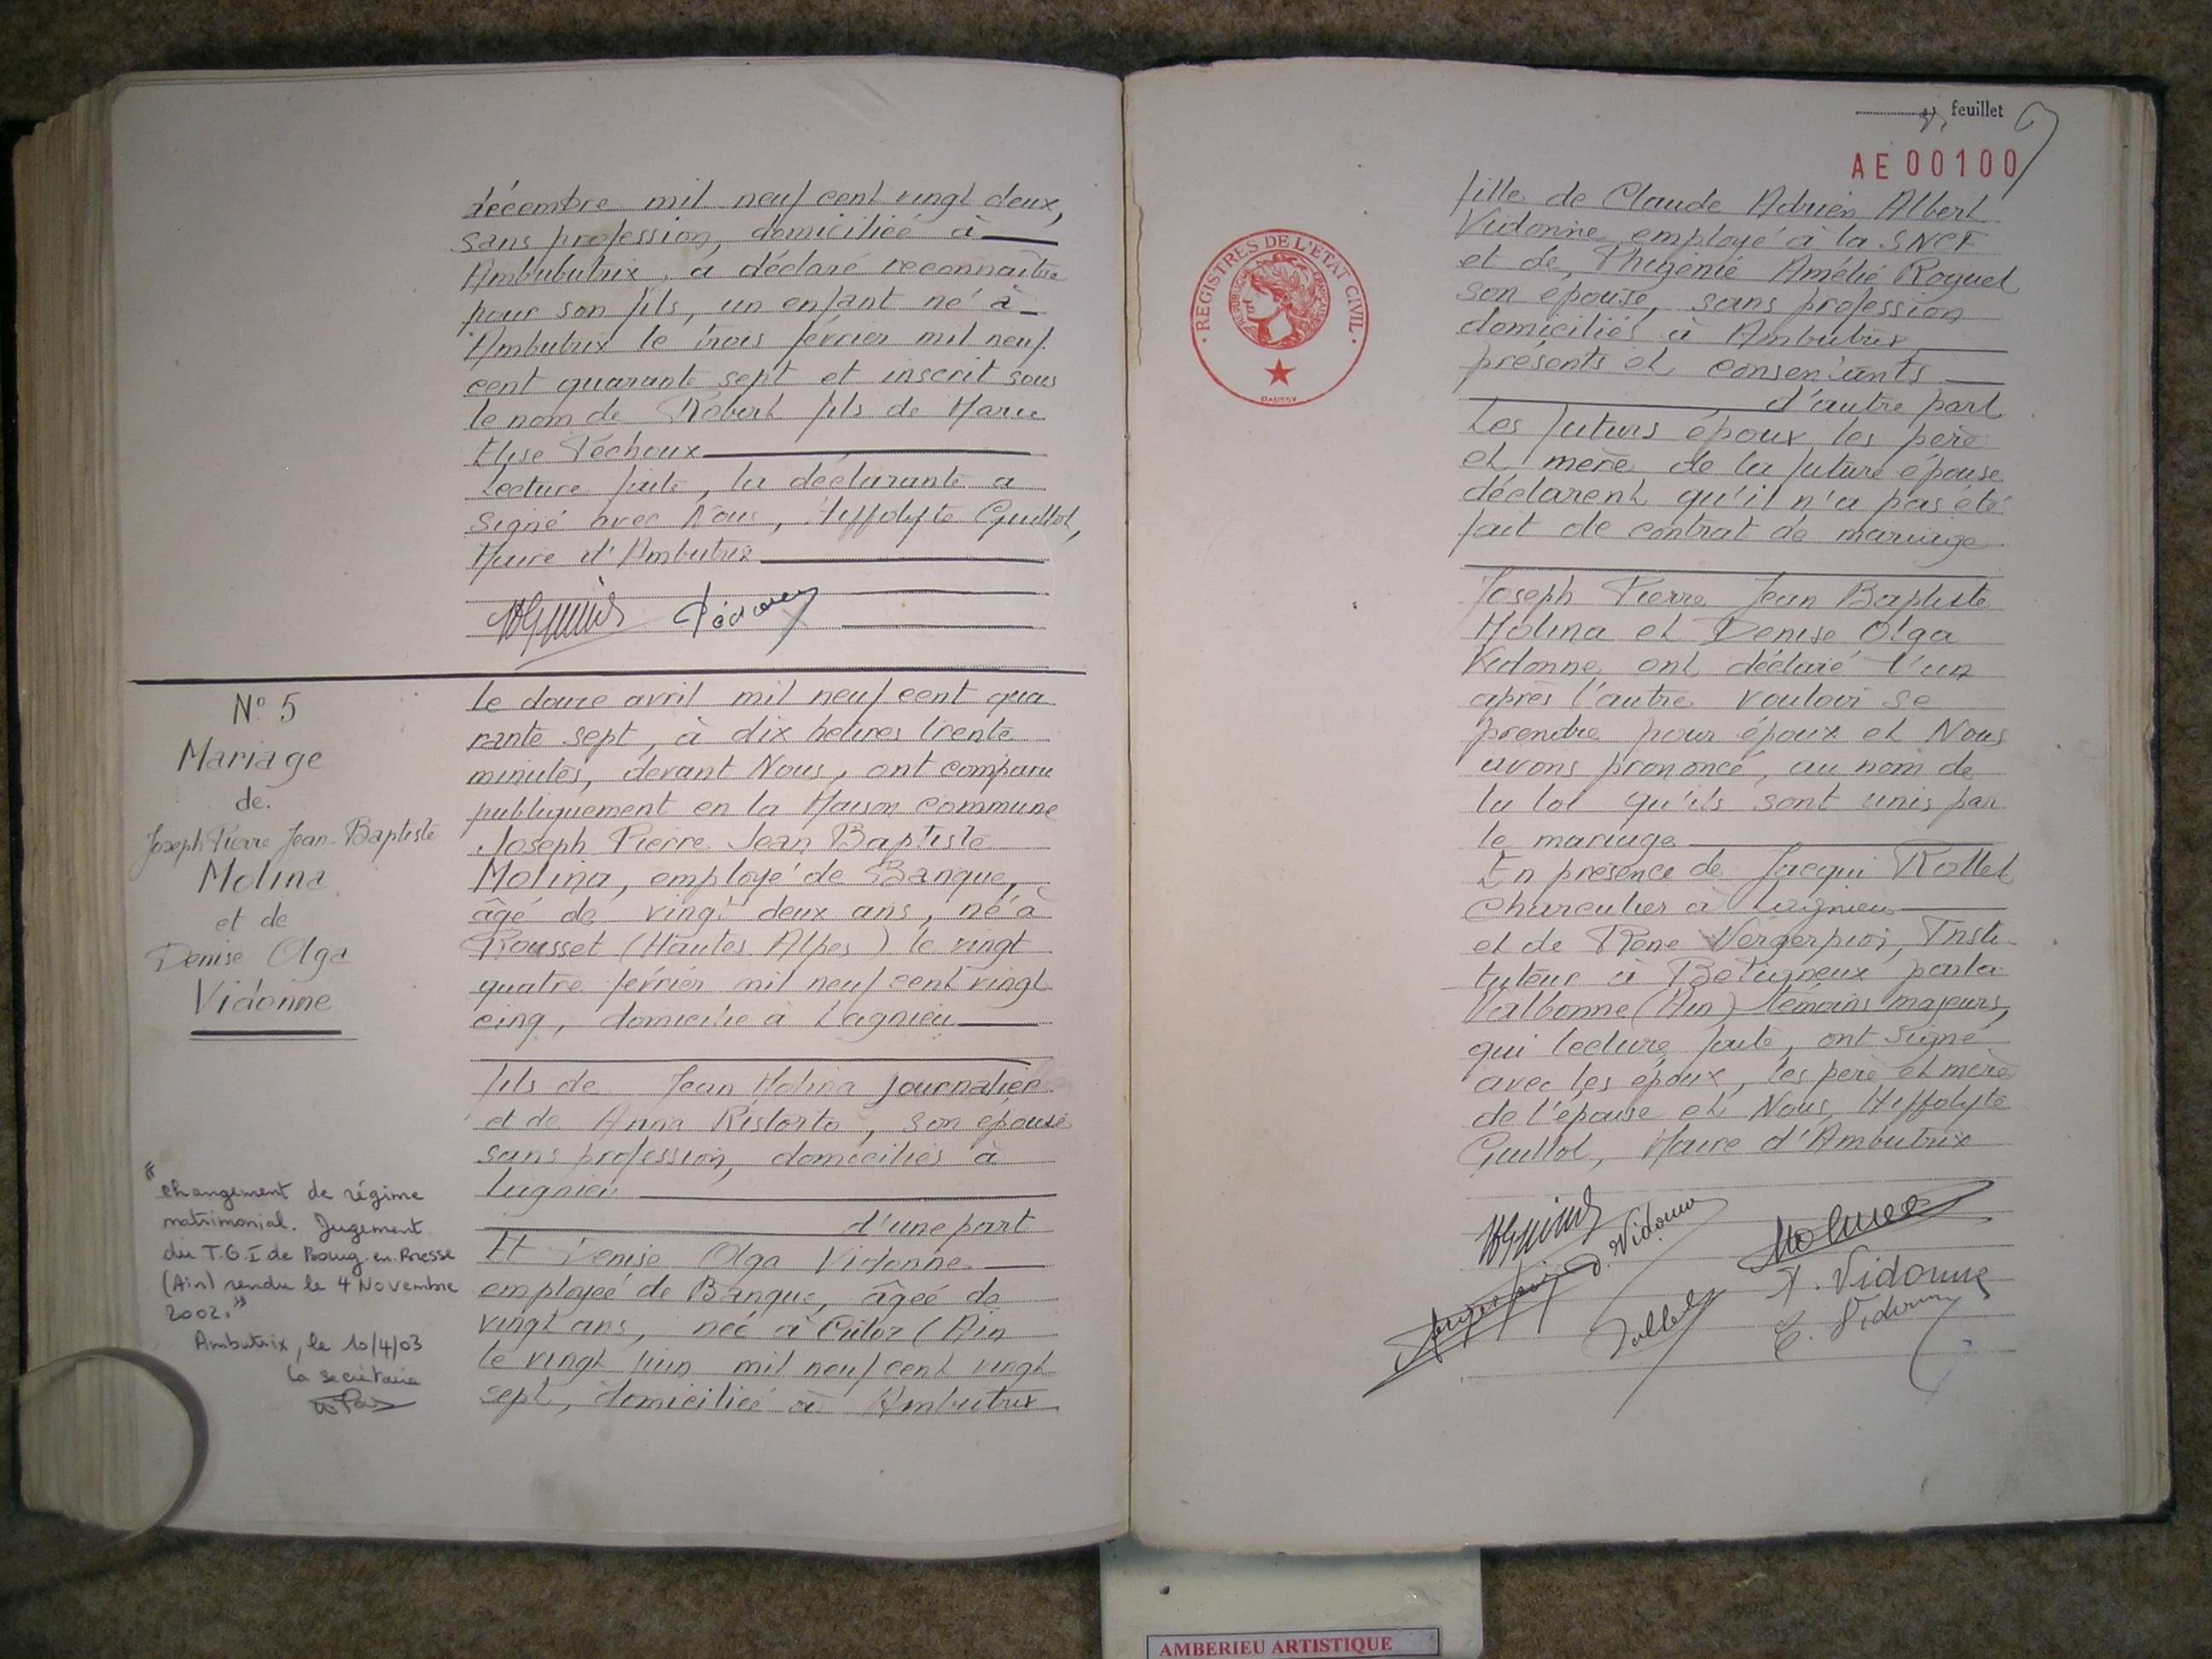 décembre mil neuf cent vingt deux,
sans profession, domiciliée à
Ambububrix, a déclaré reconnaître
pour son fils, un enfant né à
Ambutrix le trois février mil neuf
cent quarante sept et inscrit sous
le nom de Robert fils de Marie
Elise Péchoux
Lecture faite, la déclarante a
signé avec Nous, Hippolyte Guillot,
Maire d'Ambutrix
N° 5
Mariage
de
Joseph Pierre Jean-Baptiste
Molina
et de
Denise Olga
Vidonne
"changement de régime
matrimonial. Jugement
du T.G.I de Bourg-en-Bresse
(Ain) rendu le 4 Novembre
2002."
Ambutrix, le 10/4/03
la secrétaire
le douze avril mil neuf cent qua
rante sept, à dix heures trente
minutes, devant Nous, ont comparu
publiquement en la Maison commune
Joseph Pierre Jean Baptiste
Molina, employé de Banque,
âgé de vingt deux ans, né à
Rousset (Hautes Alpes) le vingt
quatre février mil neuf cent vingt
cinq, domicilié à Lagnieu
fils de Jean Molina journalier
et de Anna Ristorto, son épouse
sans profession, domiciliés à
Lagnieu
d'une part
Et Denise Olga Vidonne
employée de Banque, âgée de
vingt ans, née à Culoz (Ain
le vingt juin mil neuf cent vingt
sept, domiciliée à Ambutrix
feuillet
AE 00100
REGISTRES DE L'ETAT CIVIL
DAUSSY
fille de Claude Adrien Albert
Vidonne employé à la SNCF
et de, Amélie Roguet
son épouse, sans profession
domiciliés à Ambutrix
présents et consentants
d'autre part
Les futurs époux les père
et mère de la future épouse
déclarent qu'il n'a pas été
fait de contrat de mariage
Joseph Pierre Jean Baptiste
Molina et Denise Olga
Vidonne ont déclaré l'un
après l'autre vouloir se
prendre pour époux et Nous
avons prononcé, au nom de
la loi qu'ils sont unis par
le mariage
En présence de Jacqui Rollet
Charcutier à Lagnieu
et de René Insti
tuteur à Béligneux par la
Valbonne (Ain) témoins majeurs,
qui lecture faite, ont signé
avec les époux, les père et mère
de l'épouse et Nous, Hippolyte
Guillot, Maire d'Ambutrix
D. Vidonne
Molina
A. Vidonne
E. Vidonne
AMBERIEU ARTISTIQUE